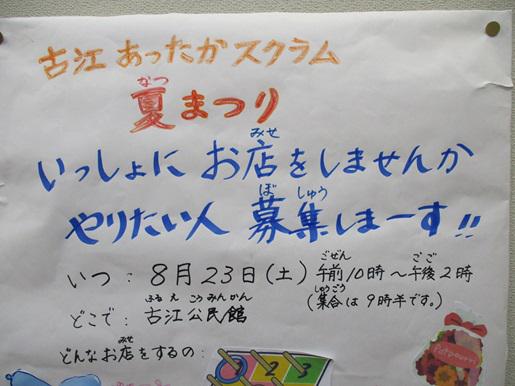 古江あったかスクラム
なつ
夏まつり
みせ
いっしょに お店をしませんか
ぼ しゅう
やりたい人 募集しまーす!!
ごぜん ごご
いつ：8月23日(土) 午前10時〜午後2時
しゅうごう
(集合は9時半です。)
ふるえ こうみんかん
どこで：古江公民館
みせ
どんなお店をするの：
1 2 3
Potpourri